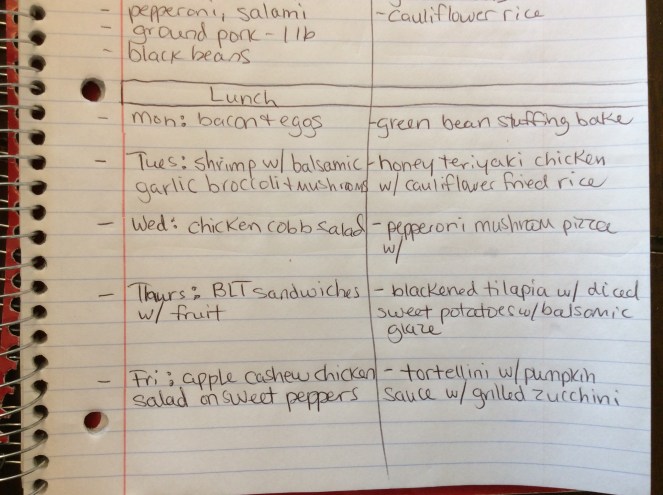 - pepperoni, salami
- ground pork - 1 lb
- black beans
- cauliflower rice
Lunch
- Mon: bacon + eggs
- green bean stuffing bake
- Tues: shrimp w/ balsamic
garlic broccoli + mushrooms
- honey teriyaki chicken
w/ cauliflower fried rice
- Wed: chicken cobb salad
- pepperoni mushroom pizza
w/
- Thurs: BLT sandwiches
w/ fruit
- blackened tilapia w/ diced
sweet potatoes w/ balsamic
glaze
- Fri: apple cashew chicken
salad on sweet peppers
- tortellini w/ pumpkin
sauce w/ grilled zucchini